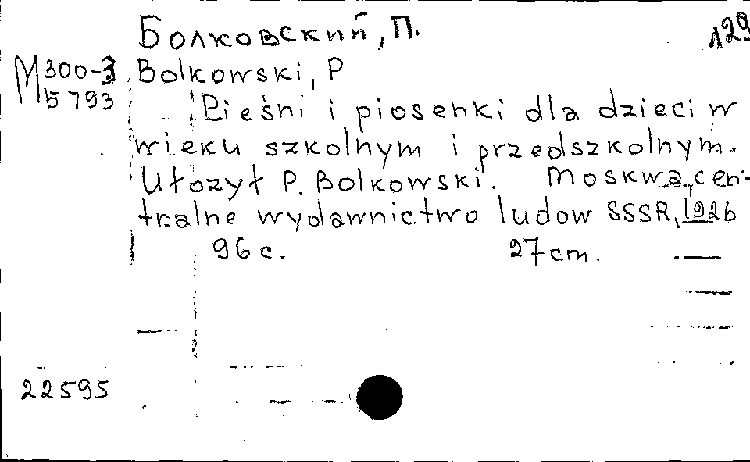 Болковский, П.
129
М300-3 Bolkowski, P
5793
Pieśni i piosenki dla dzieci w
wieku szkolnym i przedszkolnym.
Ułozył P. Bolkowski. Moskwa, cen-
tralne wydawnictwo ludow SSSR, 1926
96 с. 27 cm.
22595